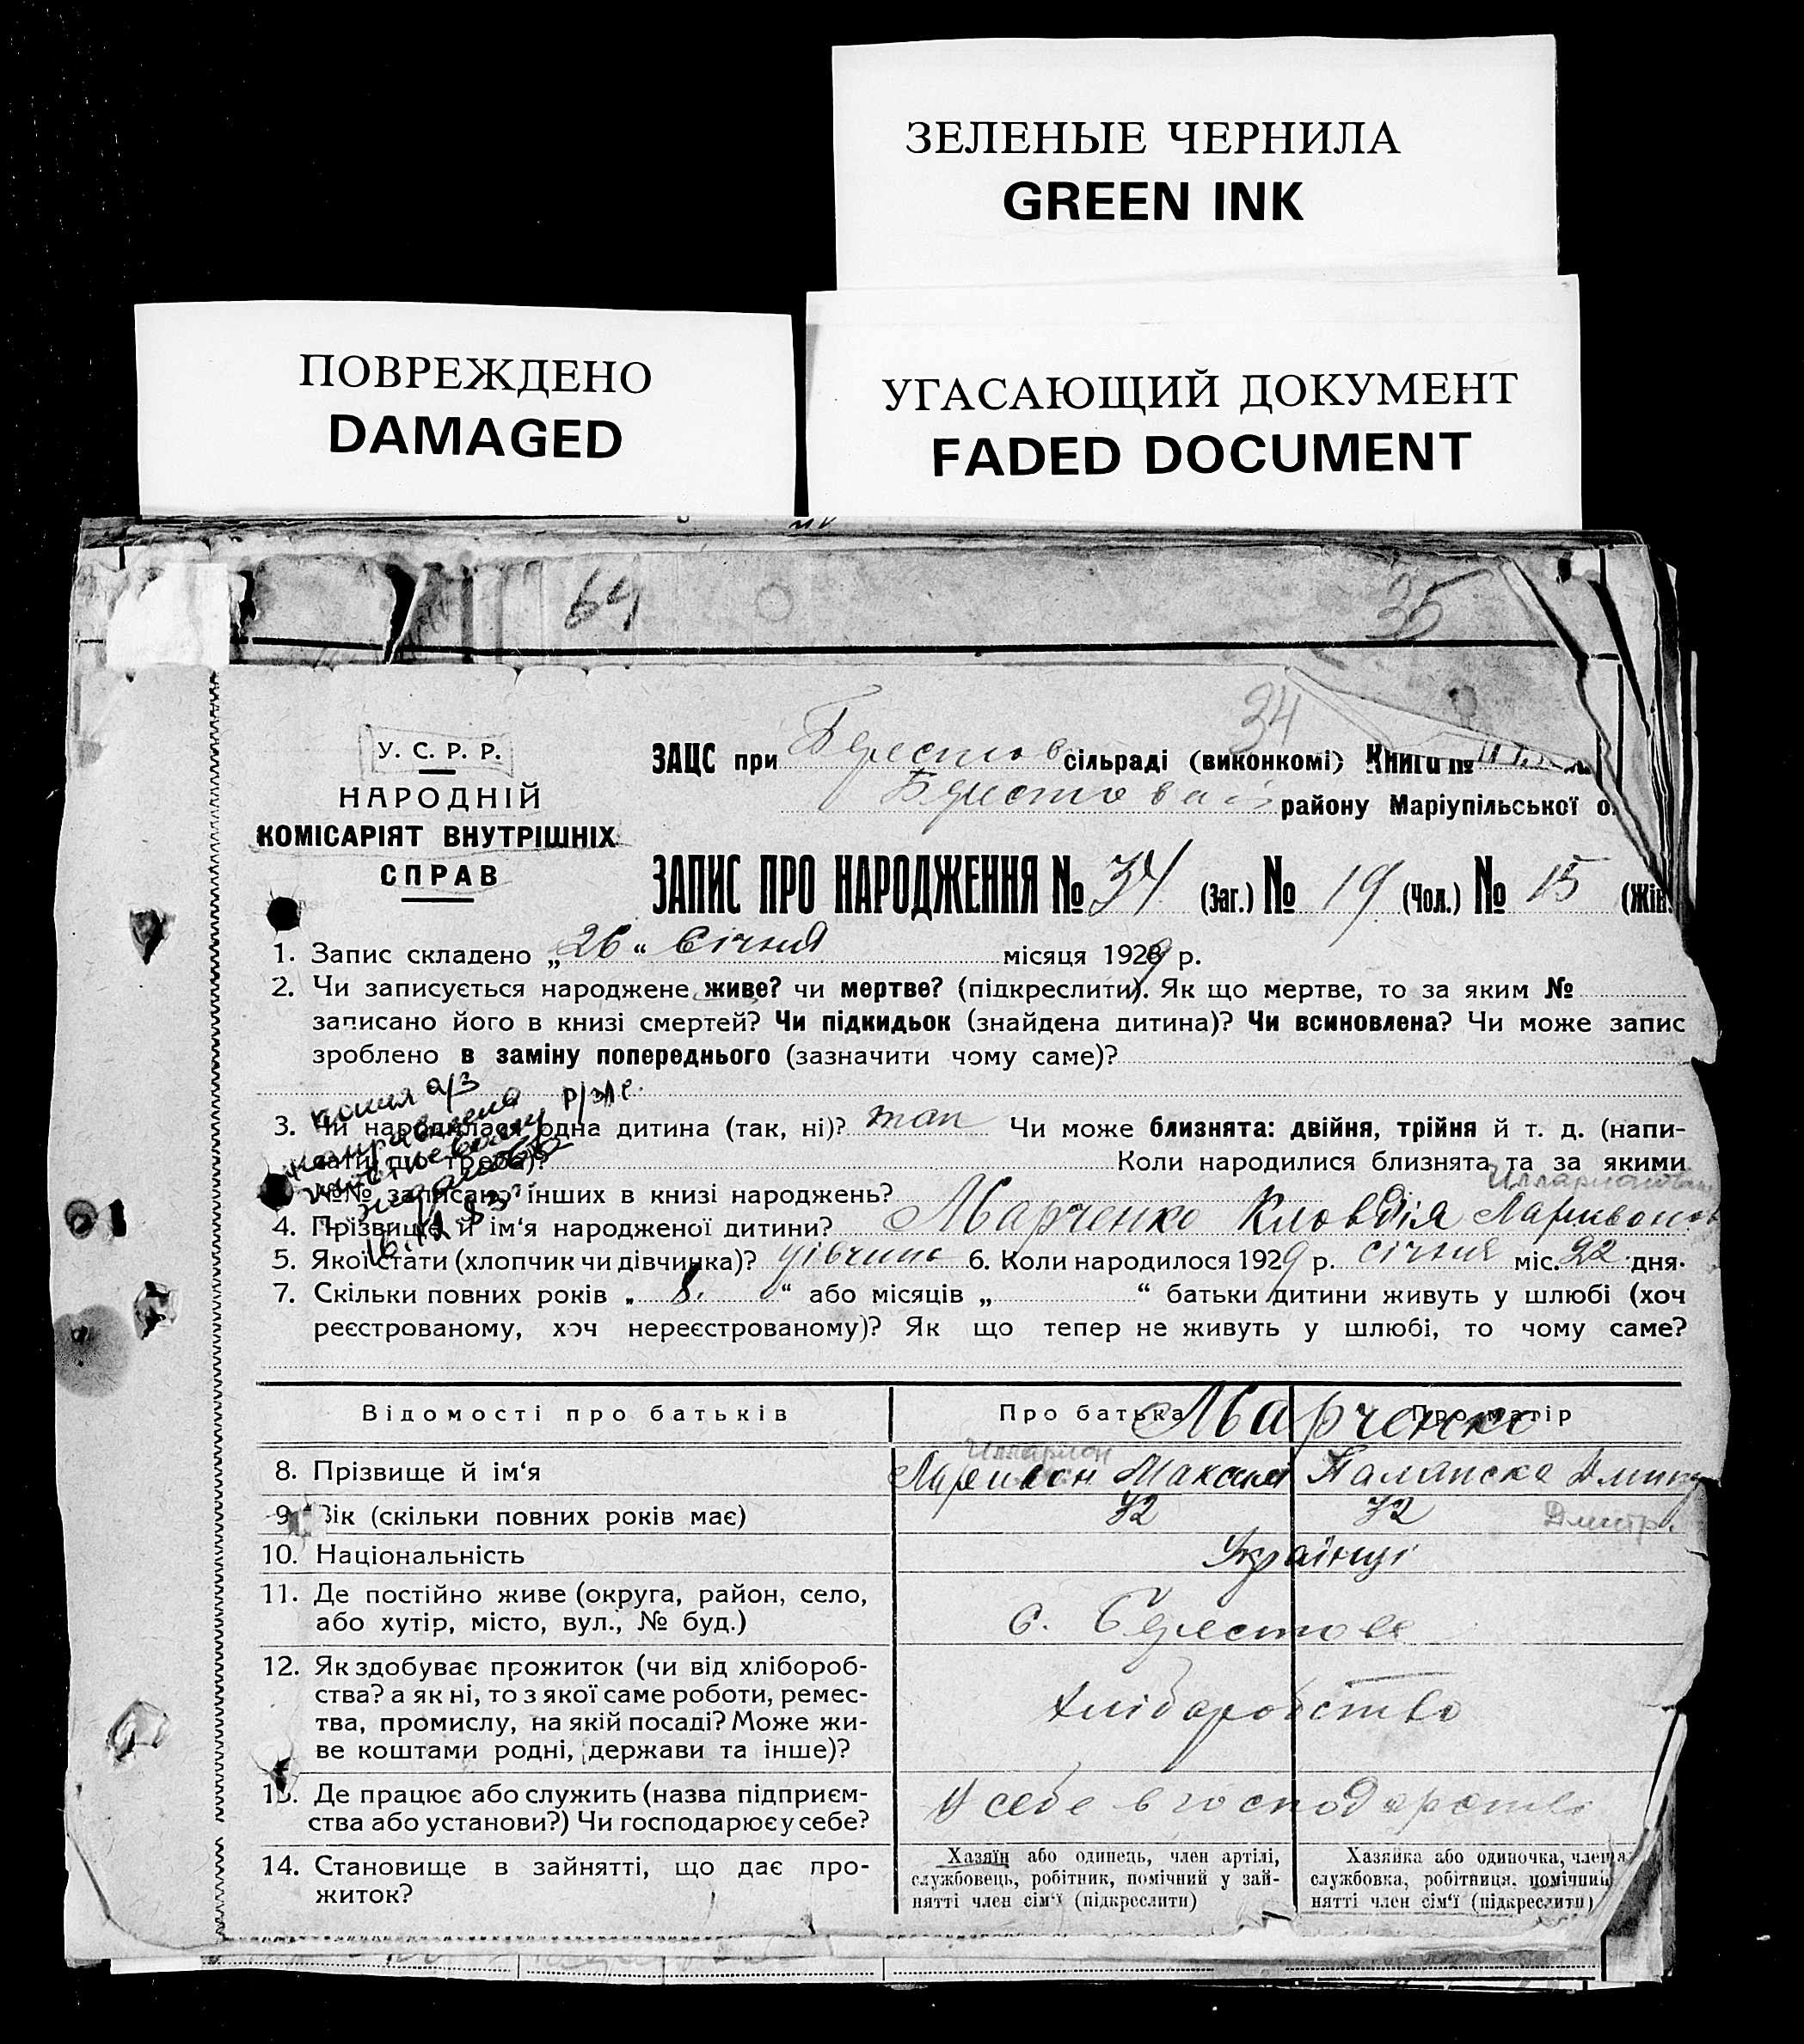 ЗЕЛЕНЫЕ ЧЕРНИЛА
GREEN INK
ПОВРЕЖДЕНО
DAMAGED
УГАСАЮЩИЙ ДОКУМЕНТ
FADED DOCUMENT
64
35
34
У. С. Р. Р.
НАРОДНІЙ
КОМІСАРІЯТ ВНУТРІШНІХ
СПРАВ
ЗАЦС при Берестов сільраді (виконкомі) Книга №
району Маріупільської о
ЗАПИС ПРО НАРОДЖЕННЯ № 34 (Заг.) № 19 (Чол.) № 15 (Жін.
1. Запис складено „26“ Січня місяця 1929 р.
2. Чи записується народжене живе? чи мертве? (підкреслити). Як що мертве, то за яким №
записано його в книзі смертей? Чи підкидьок (знайдена дитина)? Чи всиновлена? Чи може запис
зроблено в заміну попереднього (зазначити чому саме)?
копия а/з
направлена
16.12.83
3. Чи народилася одна дитина (так, ні)? так Чи може близнята: двійня, трійня й т. д. (напи-
сати що треба)? Коли народилися близнята та за якими
№№ записано інших в книзі народжень?
4. Прізвище й ім'я народженої дитини? Марченко Кловдія
5. Якої стати (хлопчик чи дівчинка)? дівчина 6. Коли народилося 1929 р. січня міс. 22 дня.
7. Скільки повних років „ 8. “ або місяців „ “ батьки дитини живуть у шлюбі (хоч
реєстрованому, хоч нереєстрованому)? Як що тепер не живуть у шлюбі, то чому саме?
Відомості про батьків Про батька Про матір
Марченко
Илларион
8. Прізвище й ім'я Ларивон Максим
9. Вік (скільки повних років має) 32 32 Дмитр.
10. Національність Українці
11. Де постійно живе (округа, район, село,
або хутір, місто, вул., № буд.) с. Берестове
12. Як здобуває прожиток (чи від хлібороб-
ства? а як ні, то з якої саме роботи, ремес-
тва, промислу, на якій посаді? Може жи-
ве коштами родні, держави та інше)?
хліборобство
13. Де працює або служить (назва підприєм-
ства або установи?) Чи господарює у себе?
У себе в господарстві
14. Становище в зайнятті, що дає про-
житок?
Хазяїн або одинець, член артілі,
службовець, робітник, помічний у зай-
нятті член сім'ї (підкреслити)
Хазяйка або одиночка, член а
службовка, робітниця, помічний
нятті член сім'ї (підкреслити)